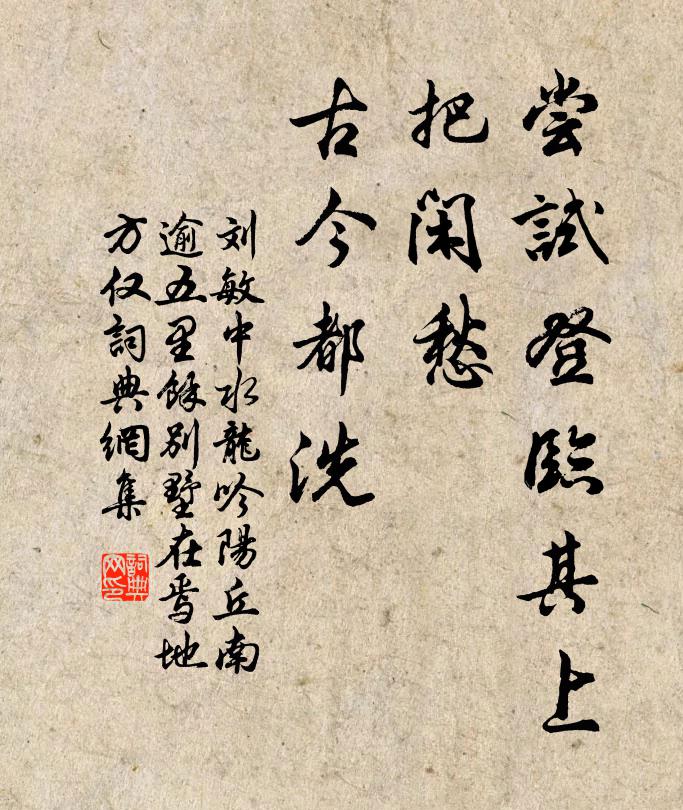 尝試登臨其上
把閑愁
古今都洗
刘敏中水龍吟陽丘南
逾五里餘別墅在焉地
方仅詞典網集
詞典网印